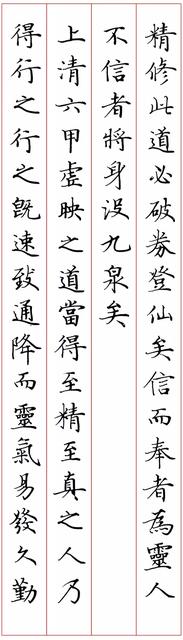 精修此道必破券登仙矣信而奉者為靈人
不信者將身沒九泉矣
上清六甲虛映之道當得至精至真之人乃
得行之行之既速致通降而靈氣易發久勤